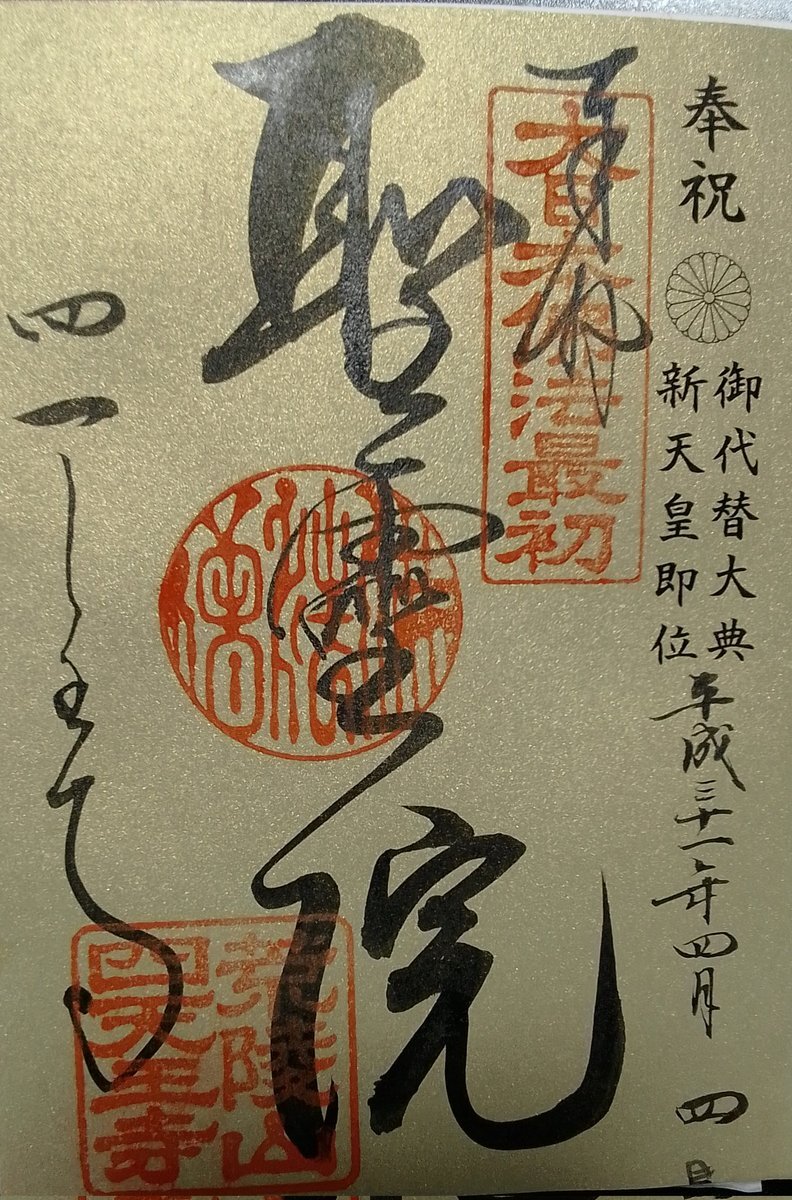 奉祝
御代替大典
新天皇即位
平成三十一年四月四日
奉拝
大日本佛法最初
聖霊院
荒陵山
四天王寺